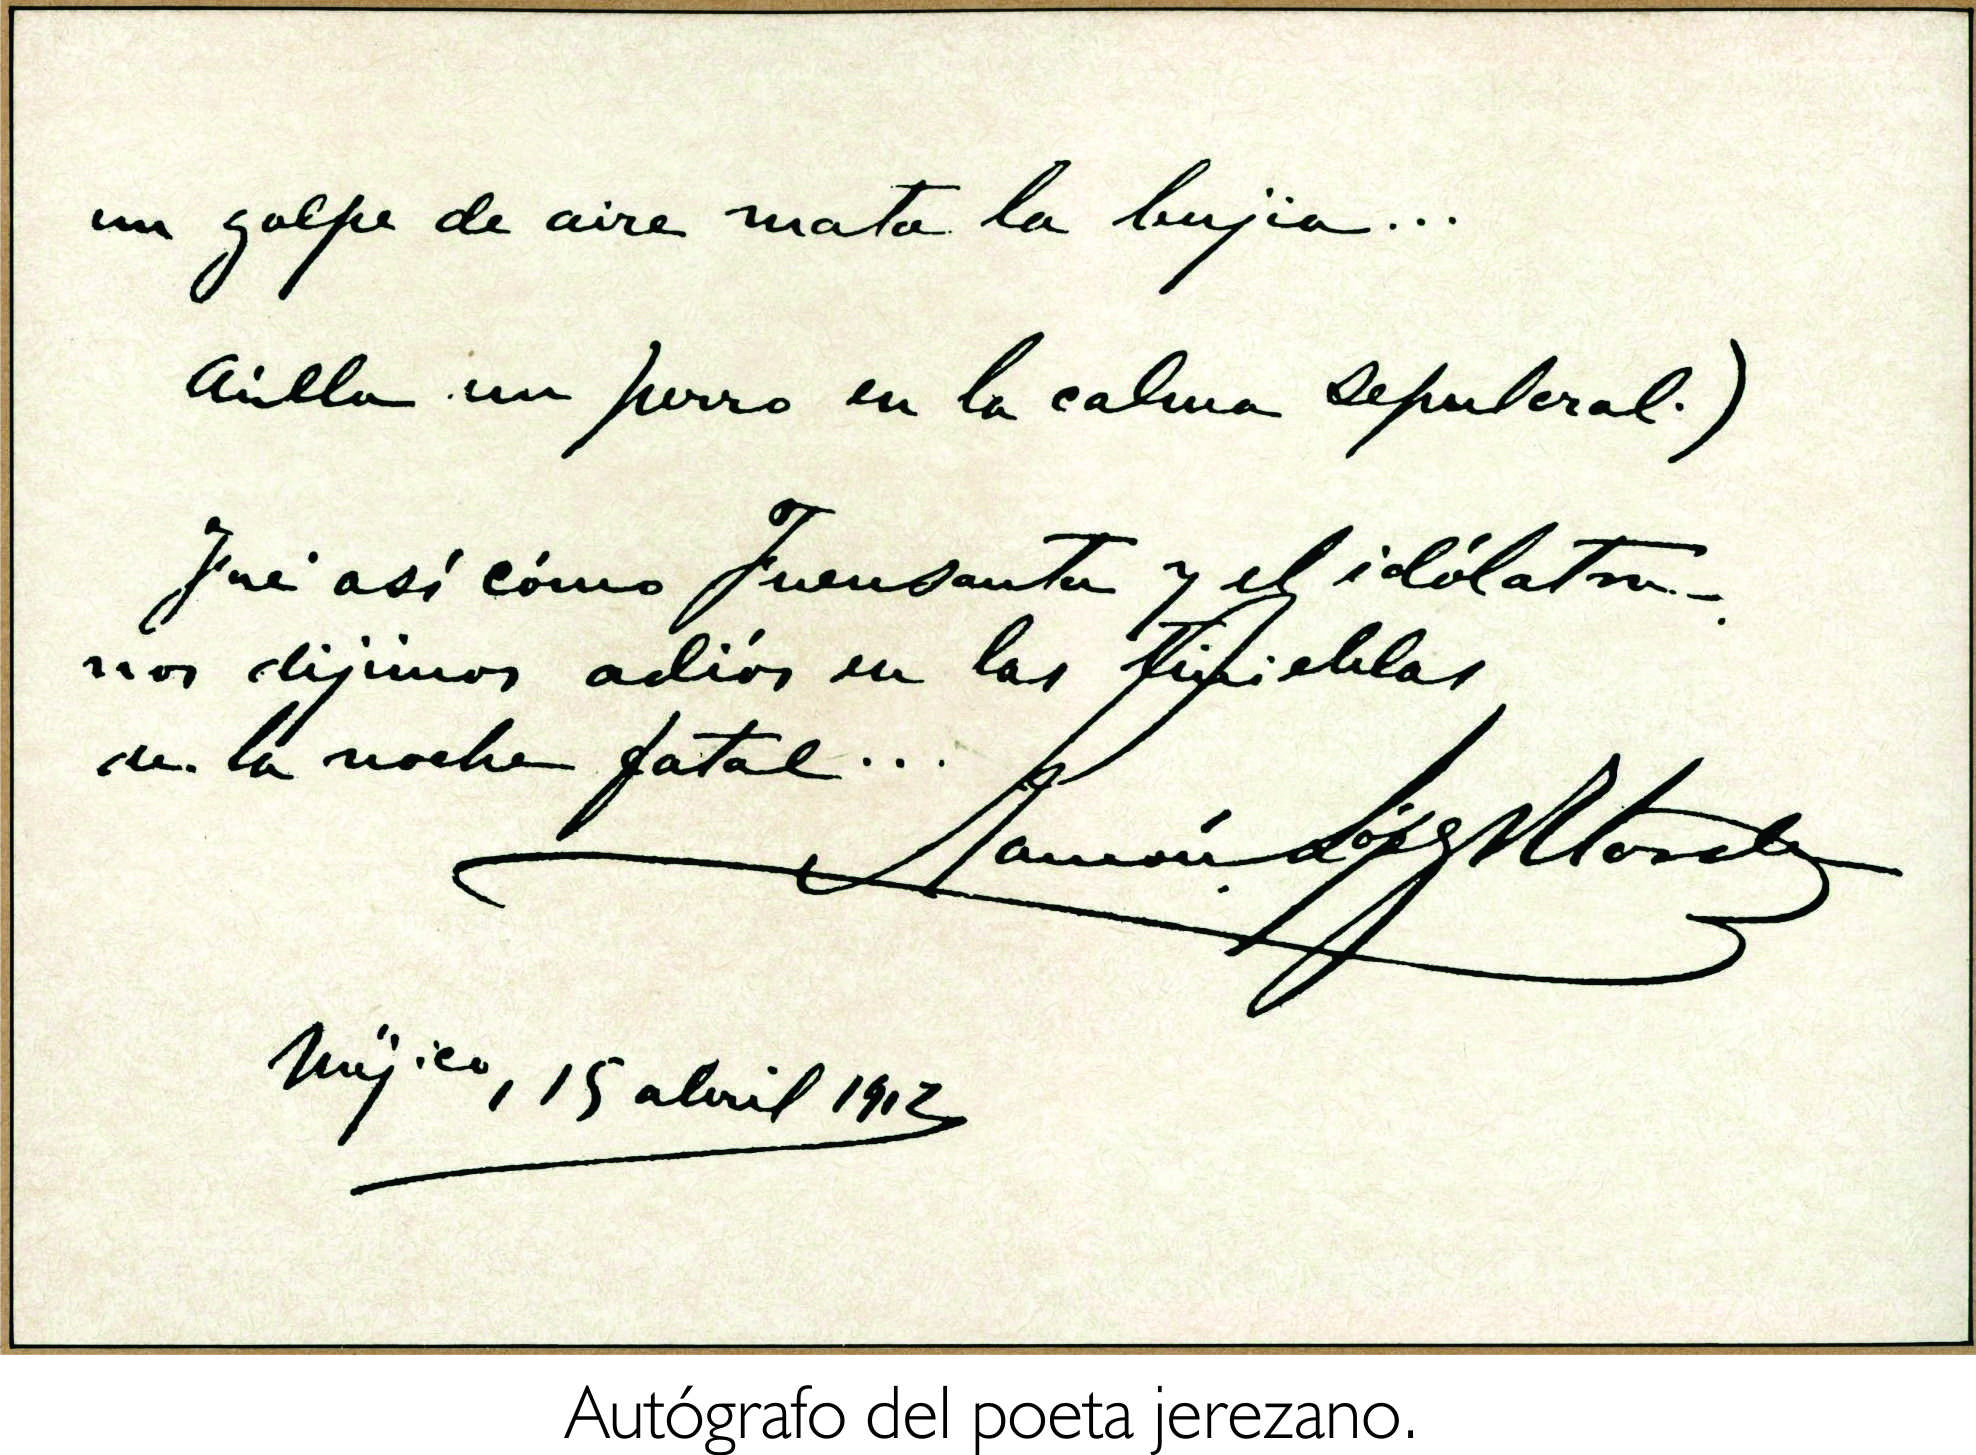 un golpe de aire mata la bujia...
Aúlla un perro en la calma sepulcral.)
Fué así cómo Fuensanta y el idólatra
nos dijimos adiós en las tinieblas
de la noche fatal...
Ramón López Velarde
Méjico, 15 abril 1912
Autógrafo del poeta jerezano.